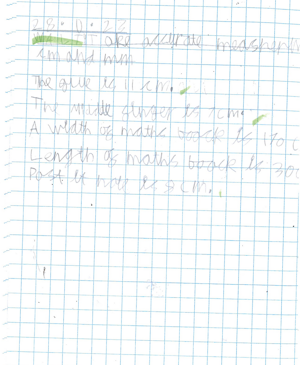 28.11.24
take accurate measure
cm and mm
The glue is 11 cm.
The midle finger is 7cm.
A width of maths boock is 170
Length of maths boock is 300
Post it not is 7 cm.